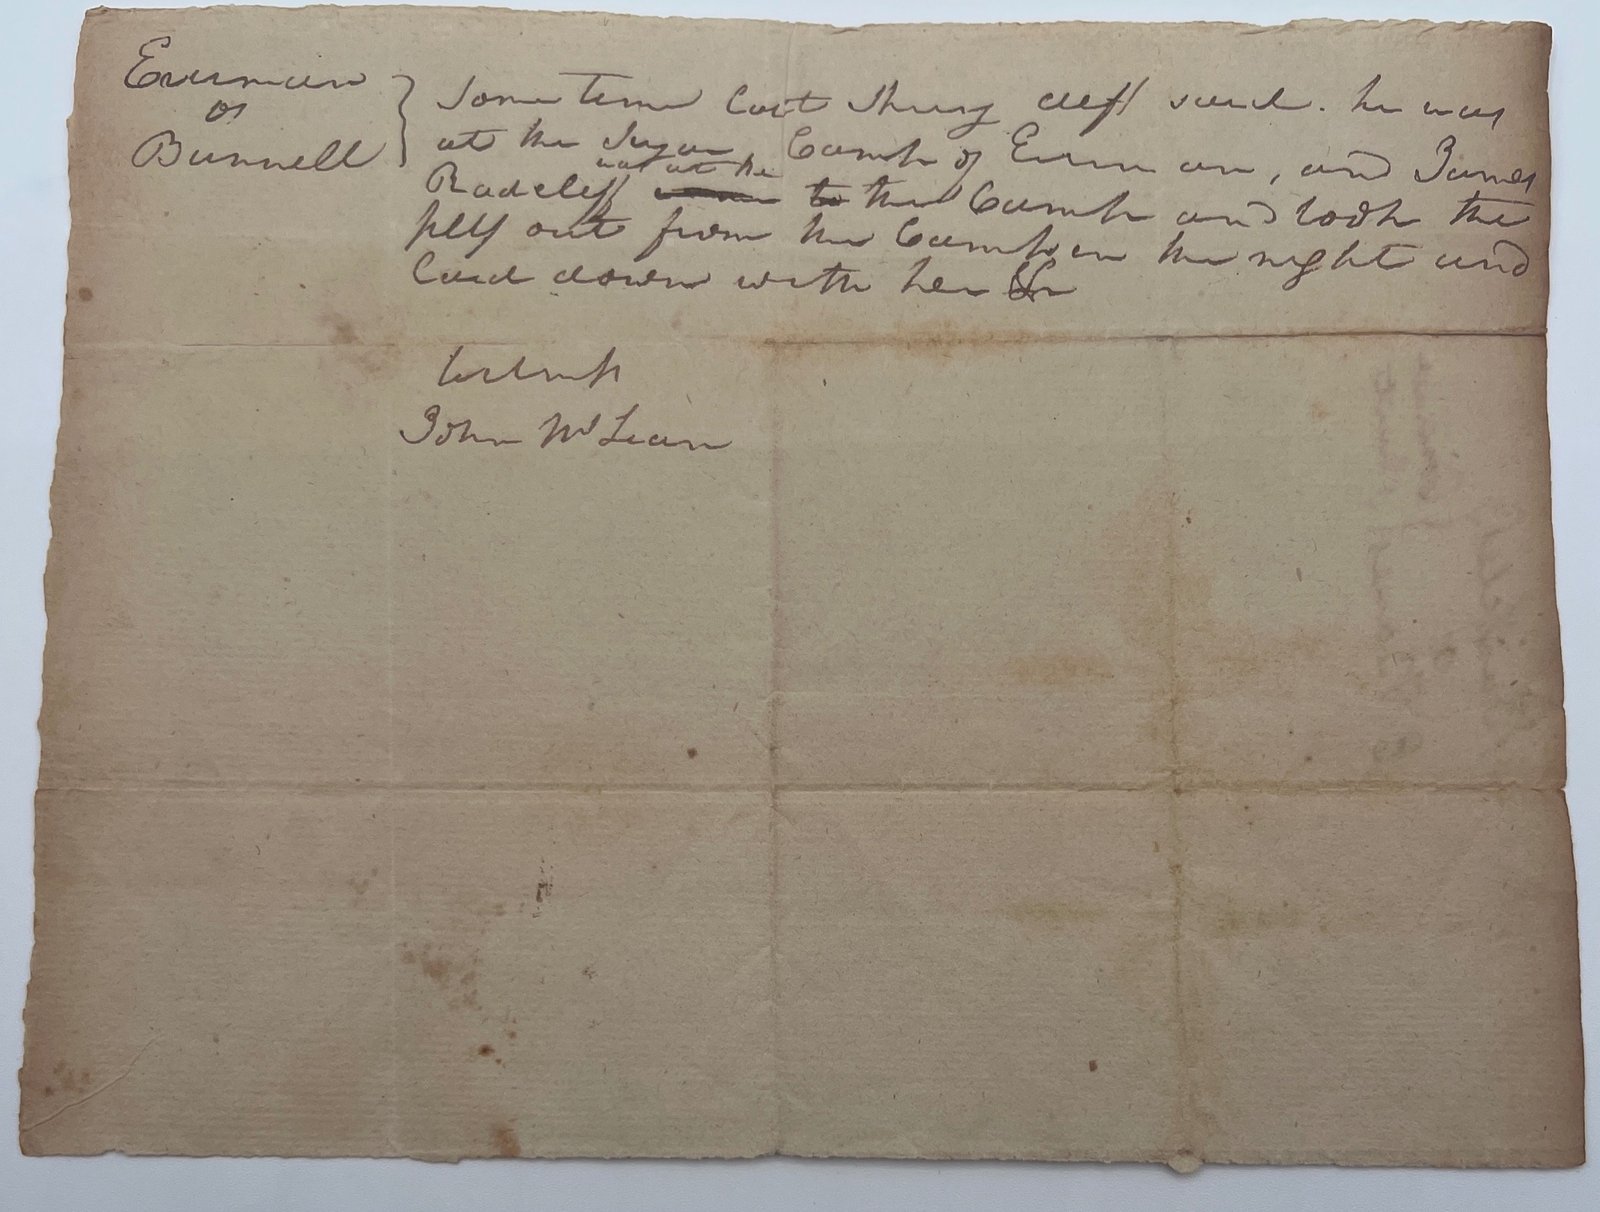 Everman
vs
Bunnell
Some time last Spring deft said. he was
at the Sugar Camp of Everman, and James
was at the
Radcliff to the Camp and took the
plff out from the Camp in the night and
laid down with her &c
witness
John McLean